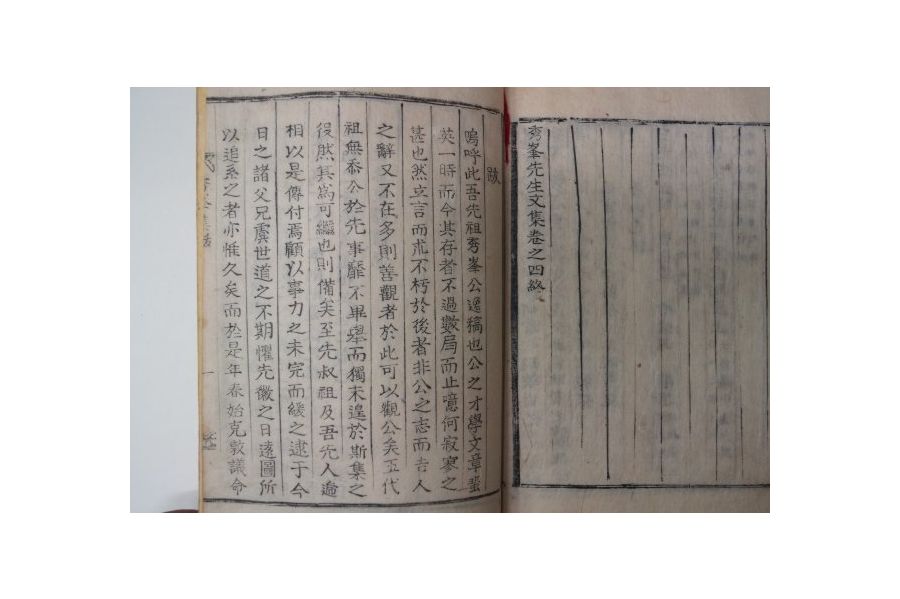 秀峯先生文集卷之四終
跋
嗚呼此吾先祖秀峯公遺稿也公之才學文章蜚
英一時而今其存者不過數局而止噫何寂寥之
甚也然立言而求不朽於後者非公之志而吉人
之辭又不在多則善觀者於此可以觀公矣五代
祖無忝公於先事靡不畢舉而獨未遑於斯集之
役然其爲可繼也則備矣至先叔祖及吾先人遹
相以是傳付焉顧以事力之未完而緩之逮于今
日之諸父兄虞世道之不期懼先徽之日遠圖所
以追系之者亦惟久矣而於是年春始克敦議命
一